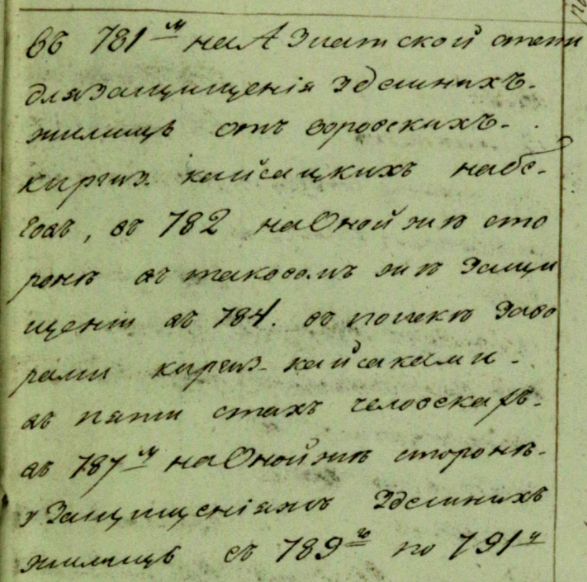 въ 781м на Азиатской степи
для защищенія здешнихъ
жилищъ отъ воровскихъ
киргиз кайсацкихъ набе-
говъ, въ 782 на Оной же сто
роне въ таковомъ же защи
щеніи въ 784. въ поиске за во
рами киргиз-кайсаками
въ пяти стахъ человекахъ
въ 787м на Оной же стороне
у защищеніяхъ здешнихъ
жилищъ съ 789го по 791й